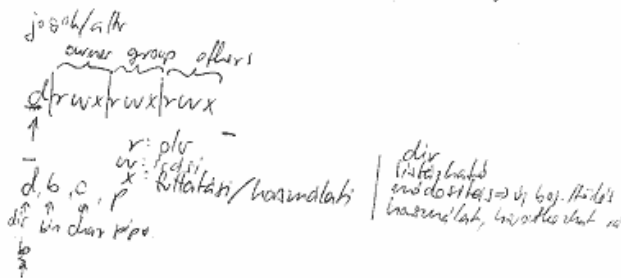 jogok/attr
owner group others
d|rwx|rwx|rwx
r: olv -
w: írási
x: futtatási/használati
-
d, b, c, p
dir bin char pipe
dir
listázható
módosítás => új bej. törlés
használat, hivatkozhat rá